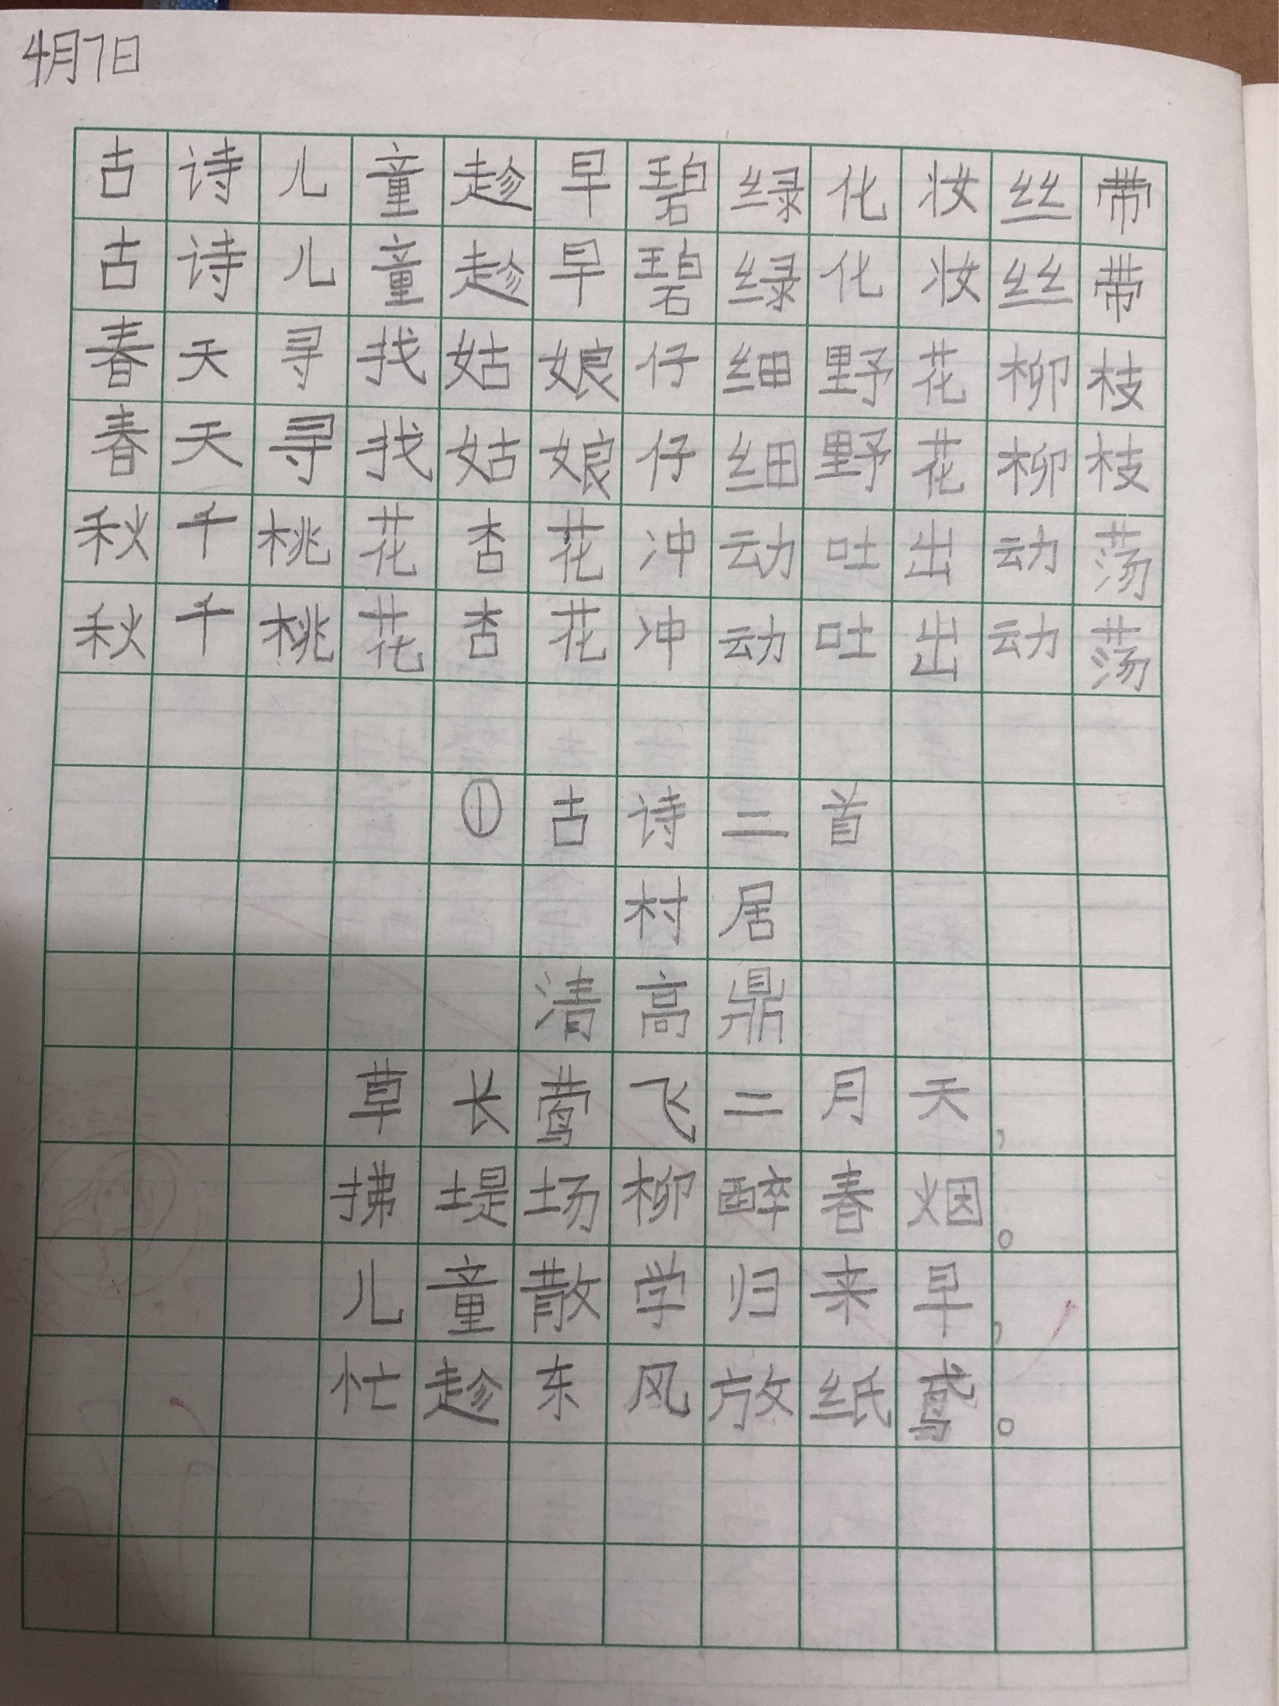 4月7日
古诗儿童趁早碧绿化妆丝带
古诗儿童趁早碧绿化妆丝带
春天寻找姑娘仔细野花柳枝
春天寻找姑娘仔细野花柳枝
秋千桃花杏花冲动吐出动荡
秋千桃花杏花冲动吐出动荡
①古诗二首
村居
清高鼎
草长莺飞二月天，
拂堤场柳醉春烟。
儿童散学归来早，
忙趁东风放纸鸢。